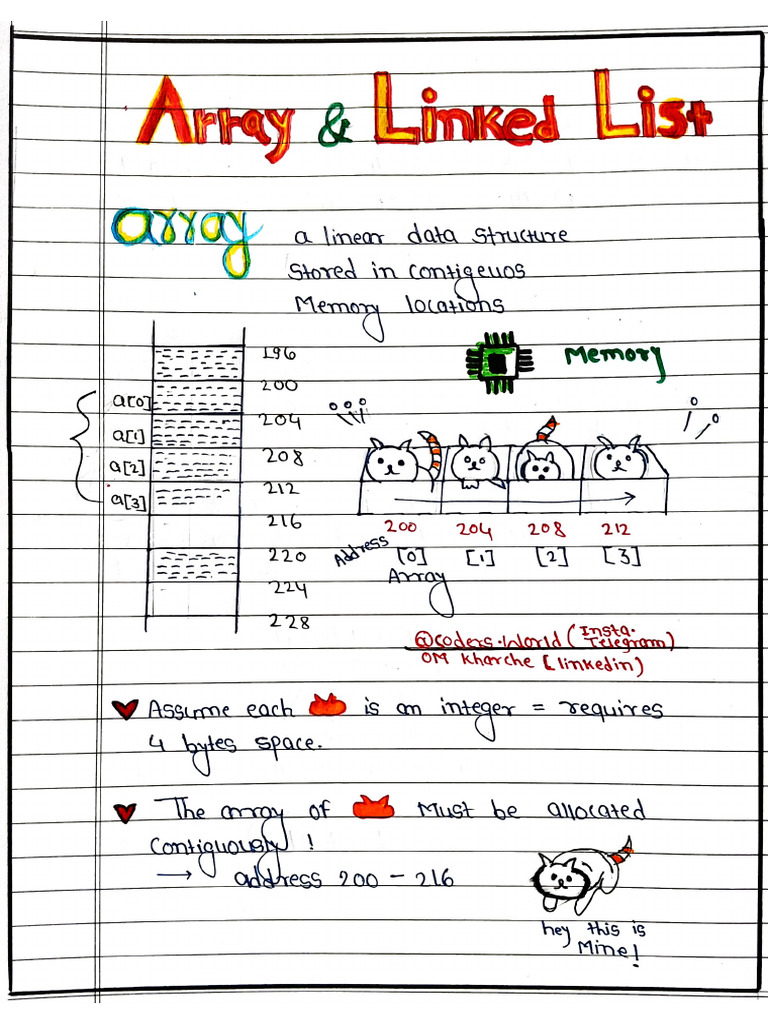 Array & Linked List
array
a linear data structure
stored in contigeuos
Memory locations
196
200
a[0]
204
a[1]
208
a[2]
212
a[3]
216
220
224
228
Memory
200 204 208 212
Address [0] [1] [2] [3]
Array
@coders.world (Insta. Telegram)
OM Kharche [linkedin)
Assume each is an integer = requires
4 bytes space.
The array of Must be allocated
Contiguously!
→ address 200 - 216
hey this is
Mine!